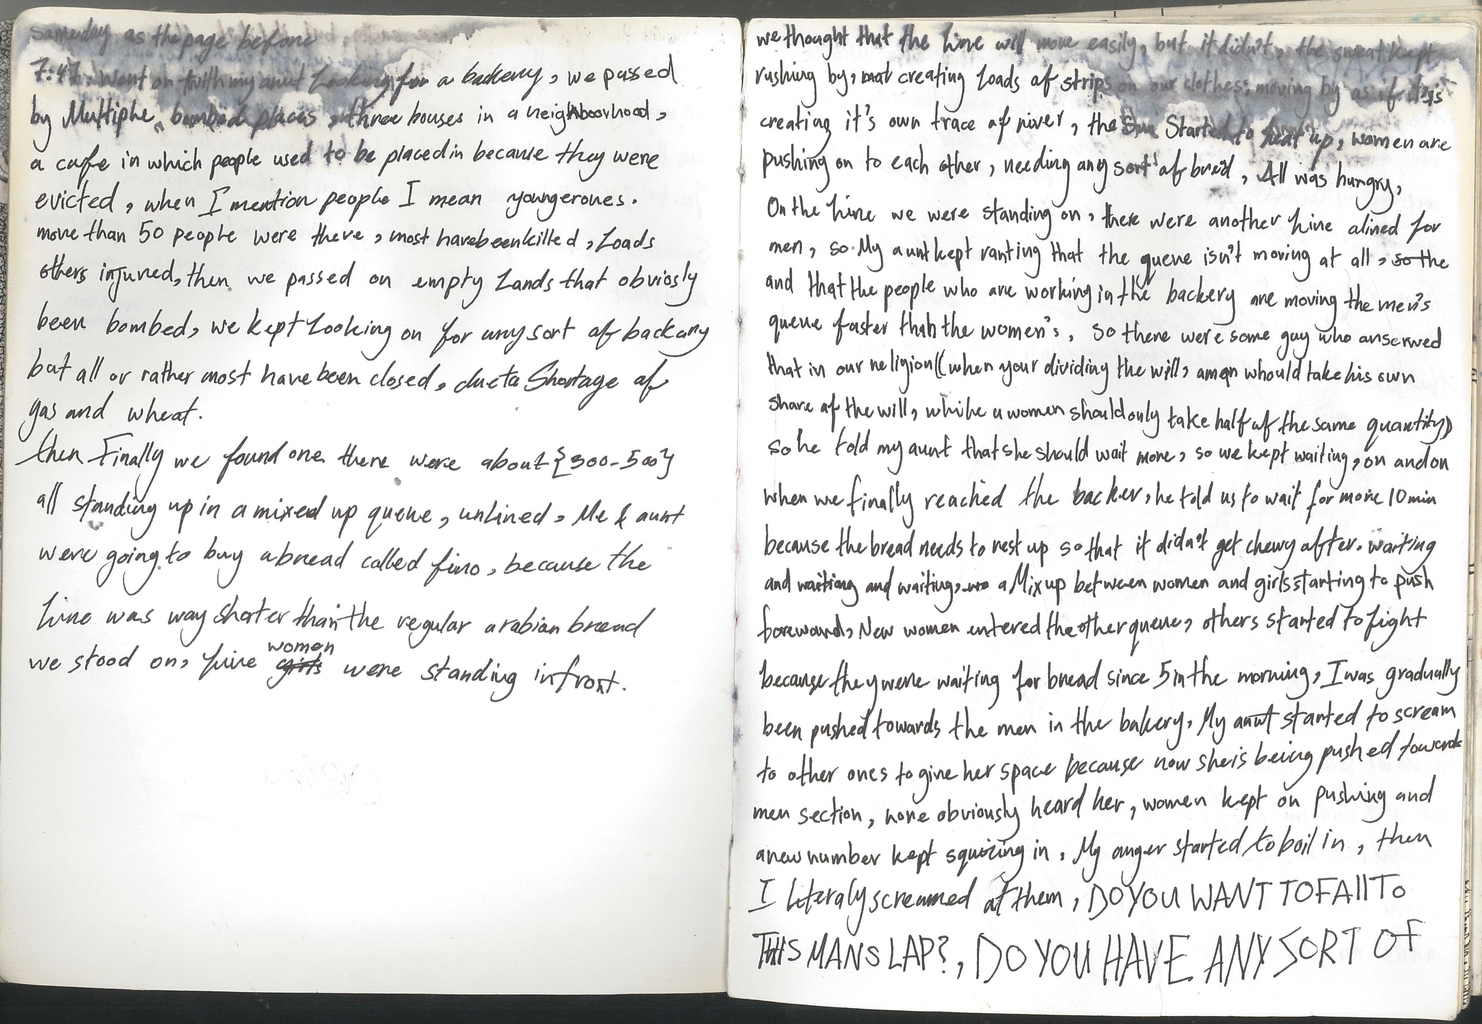 same day as the page before
7:47. went on with my aunt Looking for a backery, we passed
by Multiple bombed places, three houses in a neighboorhood,
a cafe in which people used to be placed in because they were
evicted, when I mention people I mean younger ones.
more than 50 people were there, most have been killed, Loads
others injured, then we passed on empty Lands that obviosly
been bombed, we kept Looking on for any sort of backery
but all or rather most have been closed, due to Shortage of
gas and wheat.
then Finally we found one there were about {300-500}
all standing up in a mixed up queue, unlined, Me & aunt
were going to buy a bread called fino, because the
Line was way shorter than the regular arabian bread
we stood on, five women girls were standing infront.
we thought that the Line will move easily, but it didn't, the sweat kept
rushing by, creating Loads of strips on our clothes, moving by as if it's
creating it's own trace of river, the Sun Started to heat up, women are
pushing on to each other, needing any sort of bread, All was hungry,
On the Line we were standing on, there were another Line alined for
men, so My aunt kept ranting that the queue isn't moving at all, so the
and that the people who are working in the backery are moving the men's
queue faster than the women's. So there were some guy who answered
that in our religion((when your dividing the will, a man whould take his own
share of the will, while a women should only take half of the same quantity))
so he told my aunt that she should wait more, so we kept waiting, on and on
when we finally reached the backer, he told us to wait for more 10 min
because the bread needs to rest up so that it didn't get chewy after. waiting
and waiting and waiting, a Mix up between women and girls starting to push
foreward, New women entered the other queue, others started to fight
because they were waiting for bread since 5 in the morning, I was gradually
been pushed towards the men in the bakery, My aunt started to scream
to other ones to give her space because now she is being pushed towards
men section, none obviously heard her, women kept on pushing and
a new number kept squizing in, My anger started to boil in, then
I Literaly screamed at them, DO YOU WANT TO FAll TO
THIS MANS LAP?, DO YOU HAVE ANY SORT OF